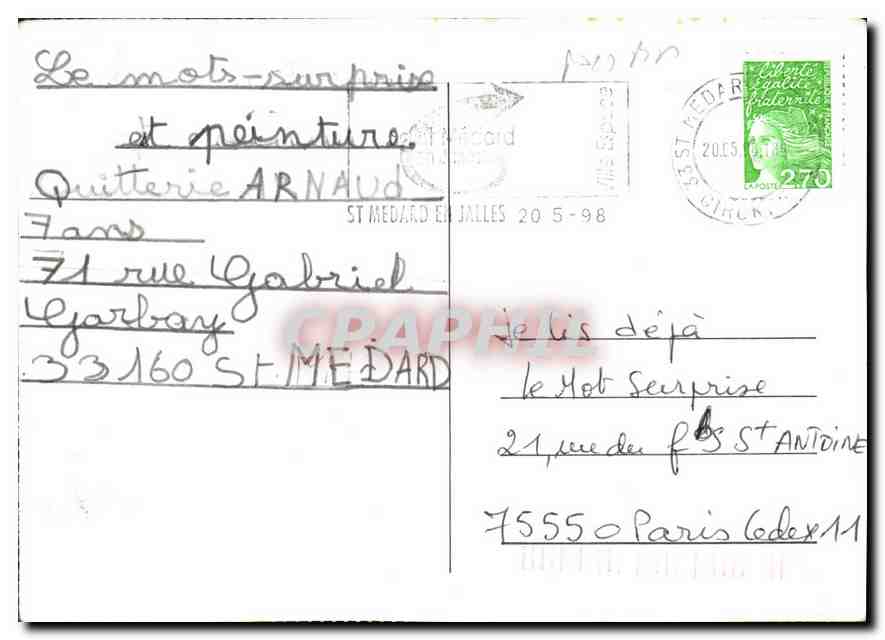 Le mots-surprise
et peinture.
Quitterie ARNAUD
7 ans
71 rue Gabriel
Garbay
33160 St MEDARD
St Médard
en Jalles
Ville Espace
ST MEDARD EN JALLES 20 5-98
33 ST MEDAR
20.05.
GIRON
liberté
égalité
fraternité
LA POSTE 2,70
CPAPHIL
Je lis déjà
le Mot Surprise
21, rue du fbg St ANTOINE
75550 Paris Cedex 11